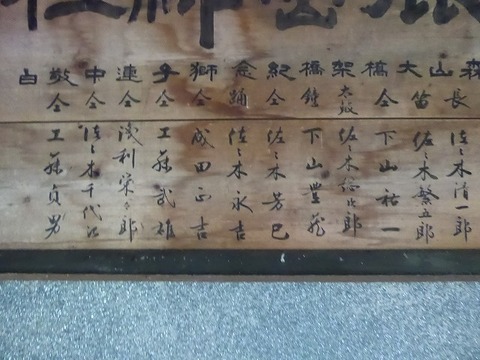 森山大橋架橋紀念獅子連中敬白
長 佐々木清一郎
笛 佐々木繁五郎
仝 下山祐一
太鼓 佐々木裕次郎
鐘 下山豊蔵
仝 佐々木芳巳
踊 佐々木永吉
仝 成田正吉
仝 工藤武雄
仝 浅利栄太郎
仝 佐々木千代治
仝 工藤貞男